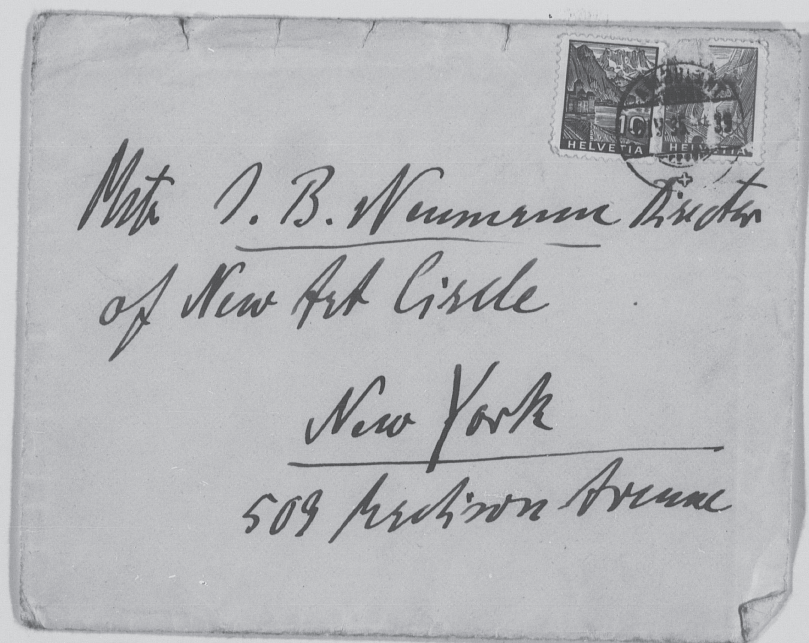 10
HELVETIA HELVETIA
Mstr J. B. Neumann Director
of New Art Circle
New York
509 Madison Avenue